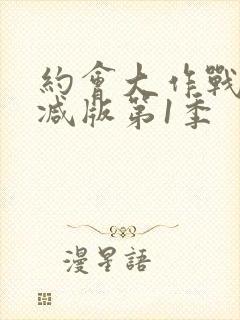 約會大作戰
減版第1季
漫星語